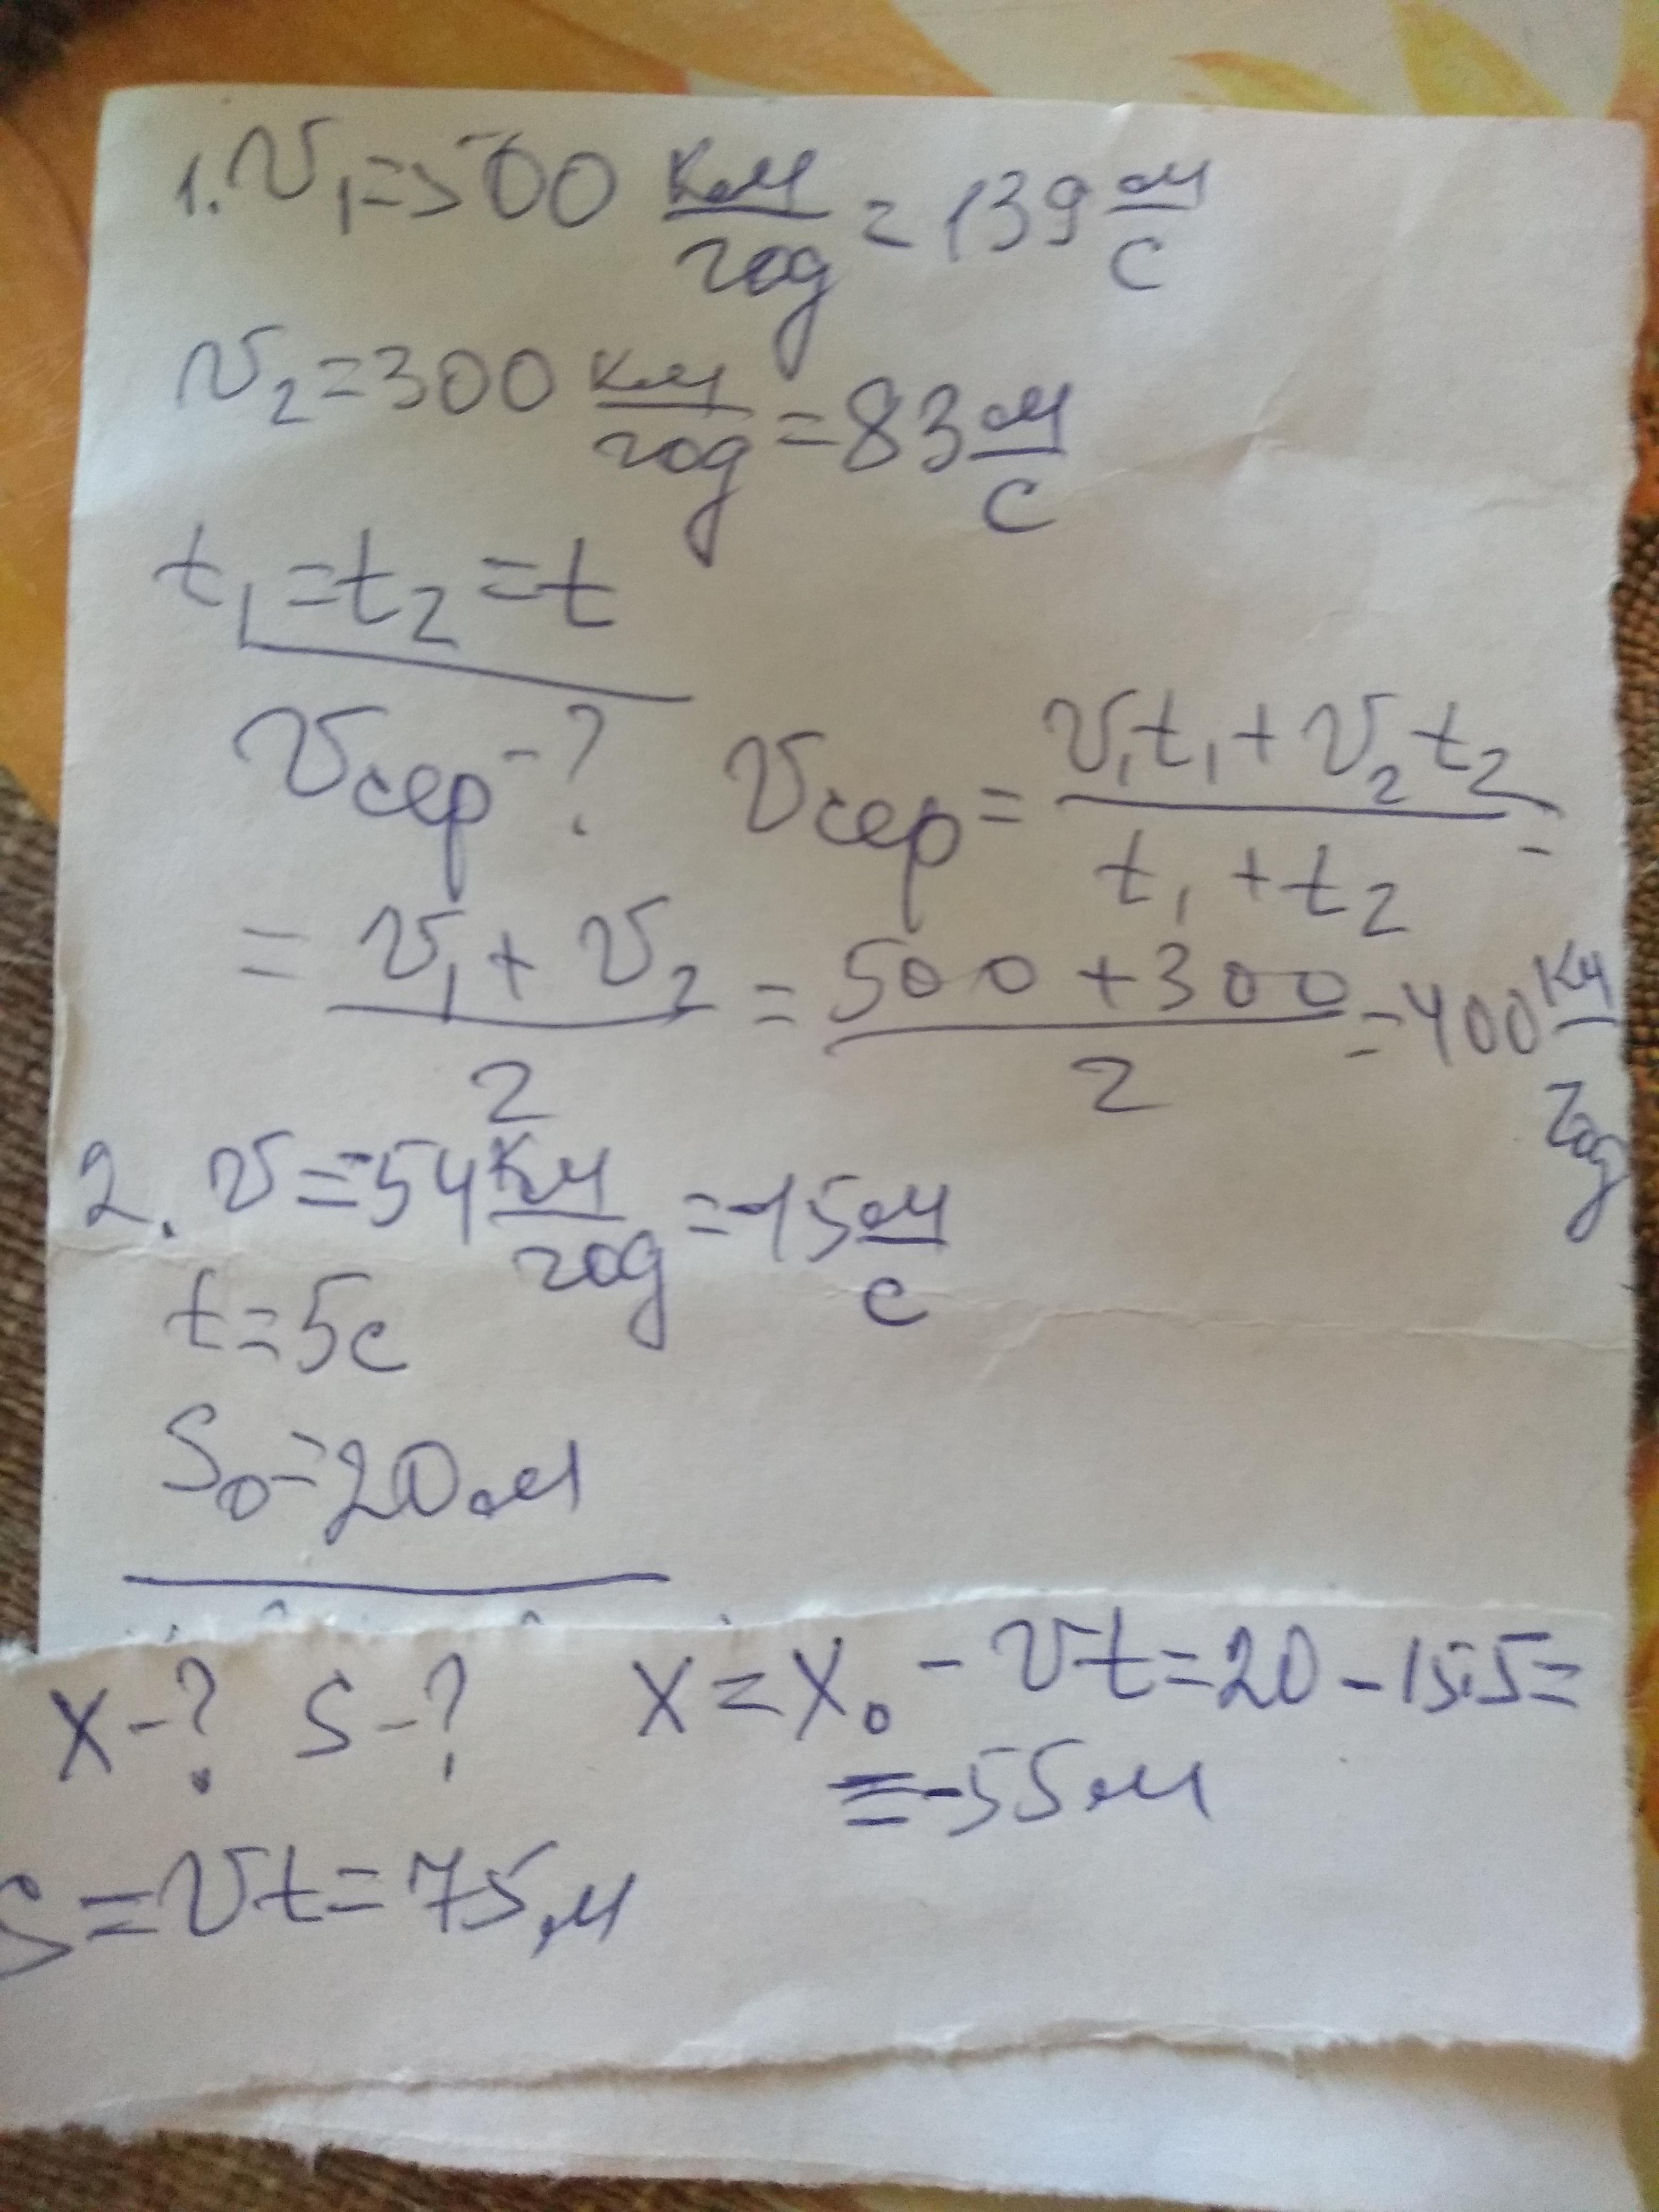 1. v₁ = 500 км/год = 139 м/с
v₂ = 300 км/год = 83 м/с
t₁ = t₂ = t
vсер - ? vсер = (v₁t₁ + v₂t₂)/(t₁ + t₂) =
= (v₁ + v₂)/2 = (500 + 300)/2 = 400 км/год
2. v = 54 км/год = 15 м/с
t = 5с
S₀ = 20м
x - ? S - ? x = x₀ - vt = 20 - 15·5 =
= -55 м
S = vt = 75 м